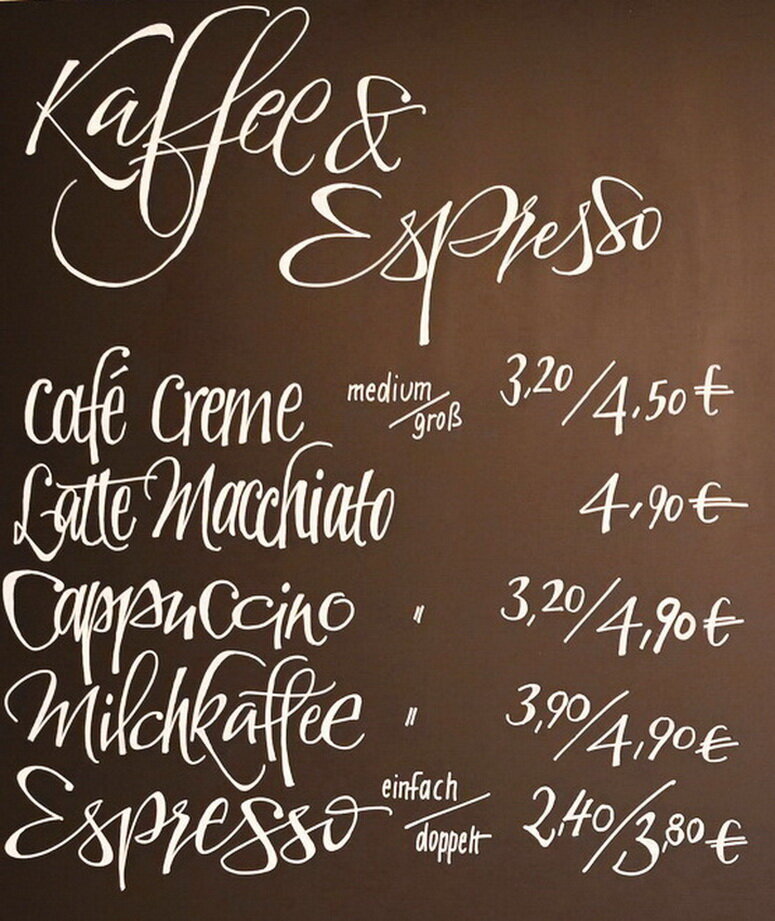 Kaffee &
Espresso
Café Creme medium/groß 3,20/4,50 €
Latte Macchiato 4,90 €
Cappuccino " 3,20/4,90 €
Milchkaffee " 3,90/4,90 €
Espresso einfach/doppelt 2,40/3,80 €